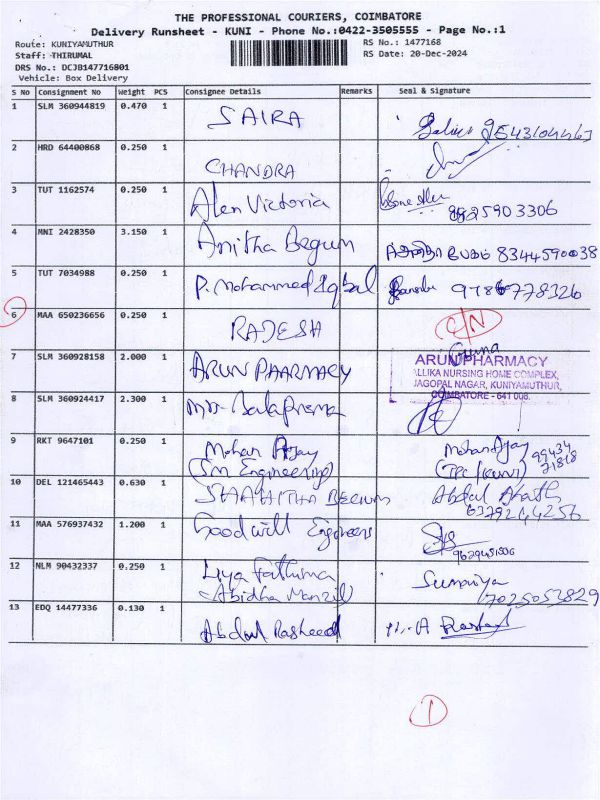 THE PROFESSIONAL COURIERS, COIMBATORE
Delivery Runsheet - KUNI - Phone No.:0422-3505555 - Page No.:1
Route: KUNIYAMUTHUR RS No.: 1477168
Staff: THIRUMAL RS Date: 20-Dec-2024
DRS No.: DCJB147716801
Vehicle: Box Delivery
S No Consignment No Weight PCS Consignee Details Remarks Seal & Signature
1 SLM 360944819 0.470 1 SAIRA
2 HRD 64400868 0.250 1 CHANDRA
3 TUT 1162574 0.250 1 Alen Victoria
8825903306
4 MNI 2428350 3.150 1 Anitha Begum
5 TUT 7034988 0.250 1 P. Mohammed Iqbal
6 MAA 650236656 0.250 1 RAJESH C/N
7 SLM 360928158 2.000 1 ARUN PHARMACY
ARUN PHARMACY
ALLIKA NURSING HOME COMPLEX,
JAGOPAL NAGAR, KUNIYAMUTHUR,
COIMBATORE - 641 008.
8 SLM 360924417 2.300 1
9 RKT 9647101 0.250 1 Mohan Ajay Mohan Ajay 99434
(SM Engineering) 71818
10 DEL 121465443 0.630 1 SHAHITHA BEGUM Abdul
11 MAA 576937432 1.200 1 Goodwill Engineers
12 NLM 90432337 0.250 1 Liya Fathima Sumaiya
(Abidha Manzil) 7025053829
13 EDQ 14477336 0.130 1 Abdul Rasheed
1